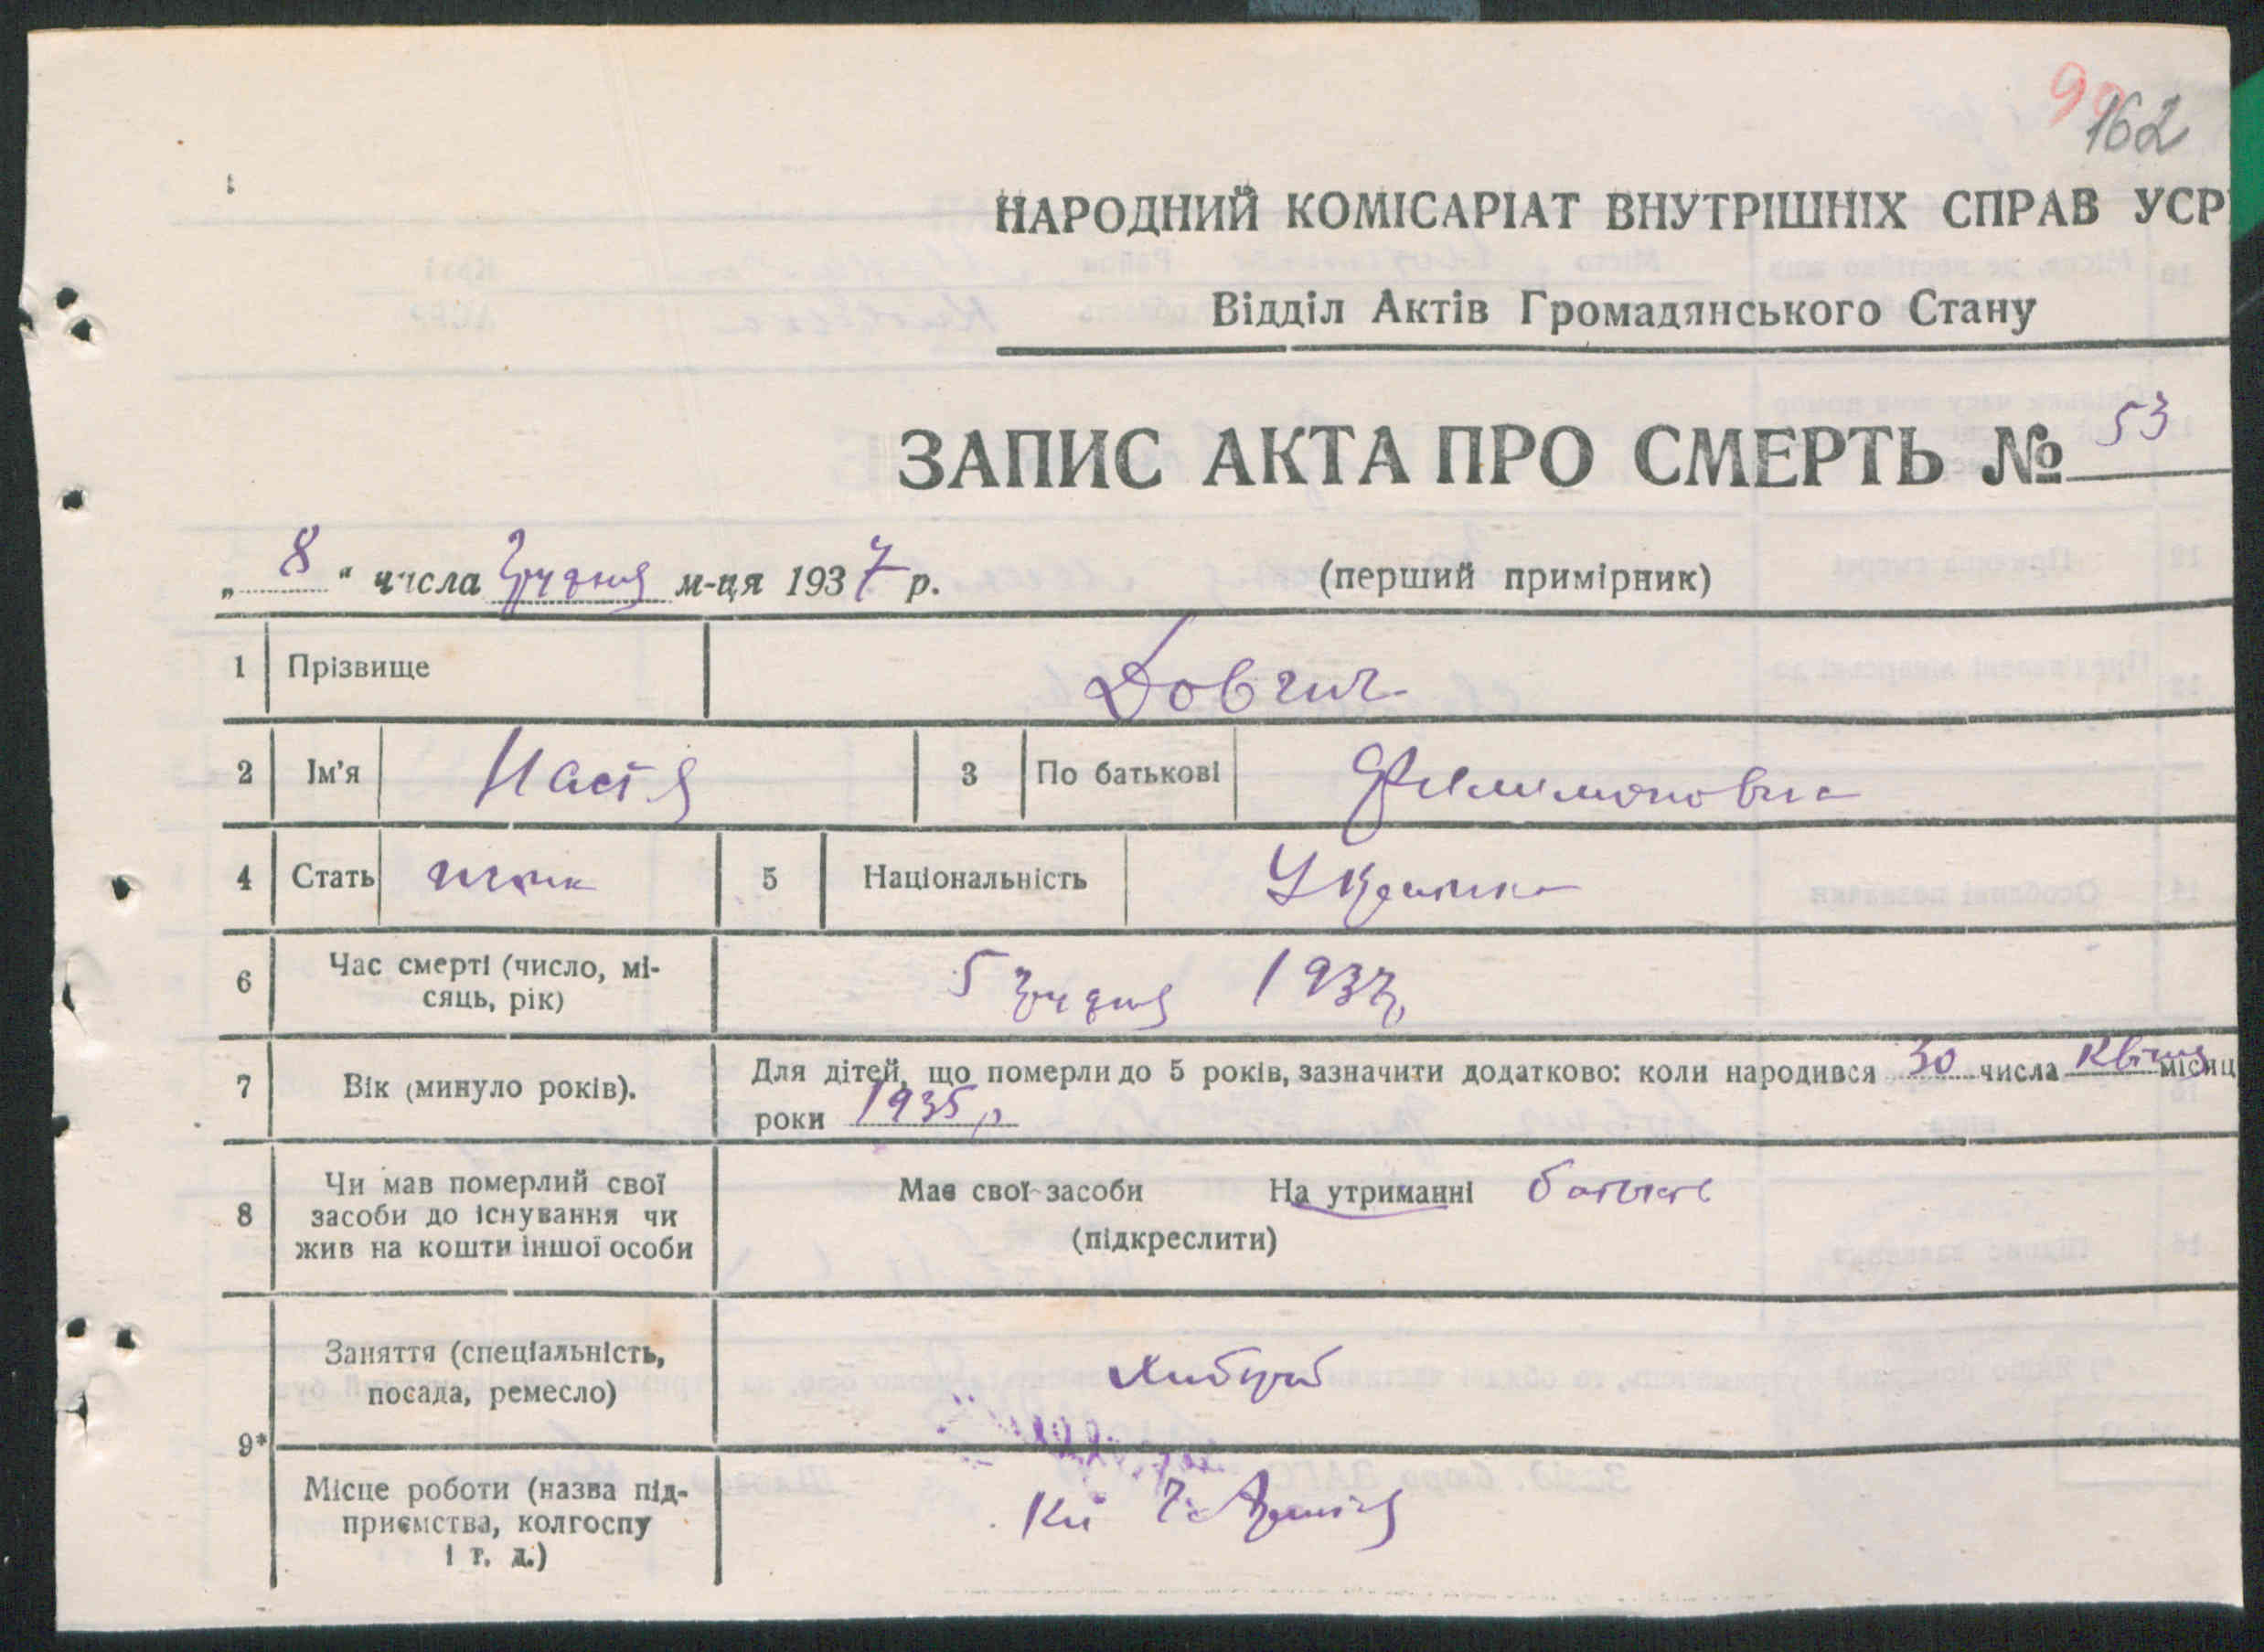 162
НАРОДНИЙ КОМІСАРІАТ ВНУТРІШНІХ СПРАВ УСР
Відділ Актів Громадянського Стану
ЗАПИС АКТА ПРО СМЕРТЬ № 53
„ 8 " числа Грудня м-ця 1937 р. (перший примірник)
1 Прізвище Довгич
2 Ім'я Настя 3 По батькові Филимоновна
4 Стать 5 Національність Українка
6 Час смерті (число, мі-
сяць, рік) 5 Грудня 1937
7 Вік (минуло років). Для дітей, що померли до 5 років, зазначити додатково: коли народився 30 числа Квітня місяц
роки 1935 р
8 Чи мав померлий свої
засоби до існування чи
жив на кошти іншої особи
Має свої засоби На утриманні батька
(підкреслити)
9* Заняття (спеціальність,
посада, ремесло) Хлібороб
Місце роботи (назва під-
приємства, колгоспу
і т. д.)
Армія